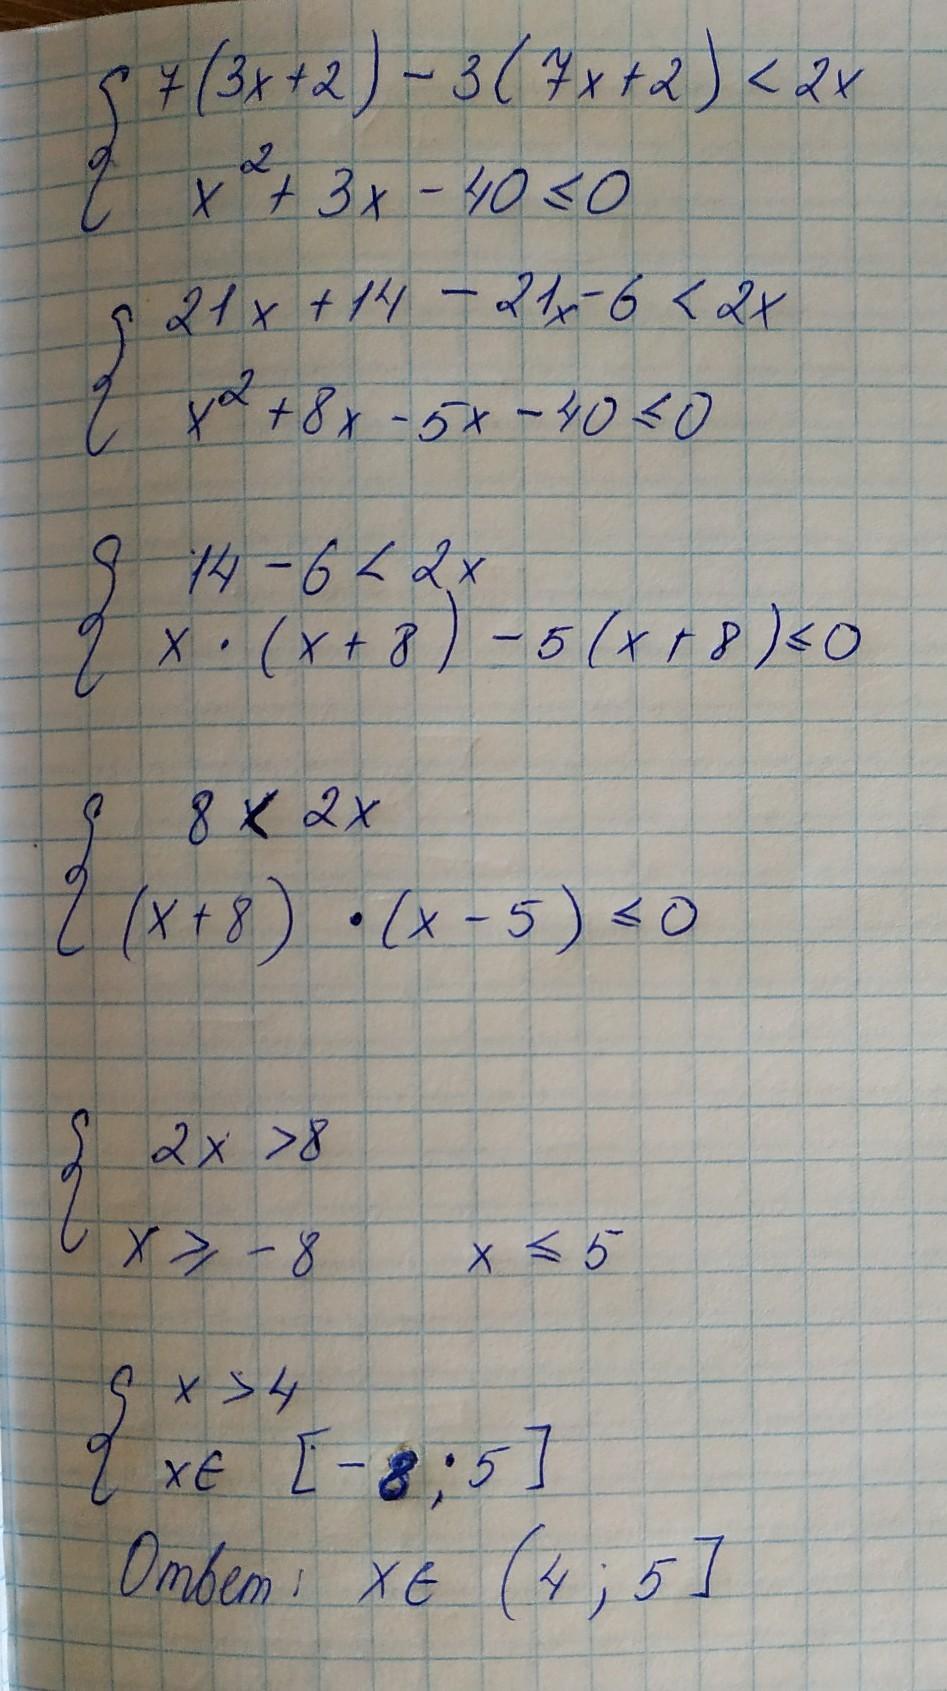 { 7(3x+2) - 3(7x+2) < 2x
x² + 3x - 40 ≤ 0
{ 21x + 14 - 21x - 6 < 2x
x² + 8x - 5x - 40 ≤ 0
{ 14 - 6 < 2x
x · (x + 8) - 5(x + 8) ≤ 0
{ 8 < 2x
(x + 8) · (x - 5) ≤ 0
{ 2x > 8
x ≥ -8 x ≤ 5
{ x > 4
x ∈ [-8; 5]
Ответ: x ∈ (4; 5]